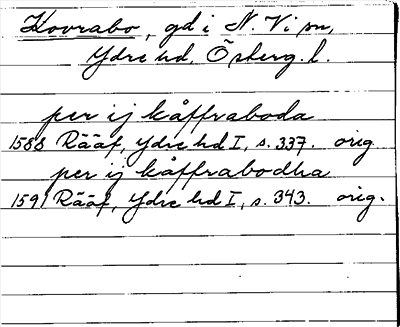 Kovrabo, gd i N. Vi sn,
Ydre hd, Österg. l.
per ij kåffraboda
1588 Rääf, Ydre hd I, s. 337. orig.
per ij kåffrabodha
1591 Rääf, Ydre hd I, s. 343. orig.